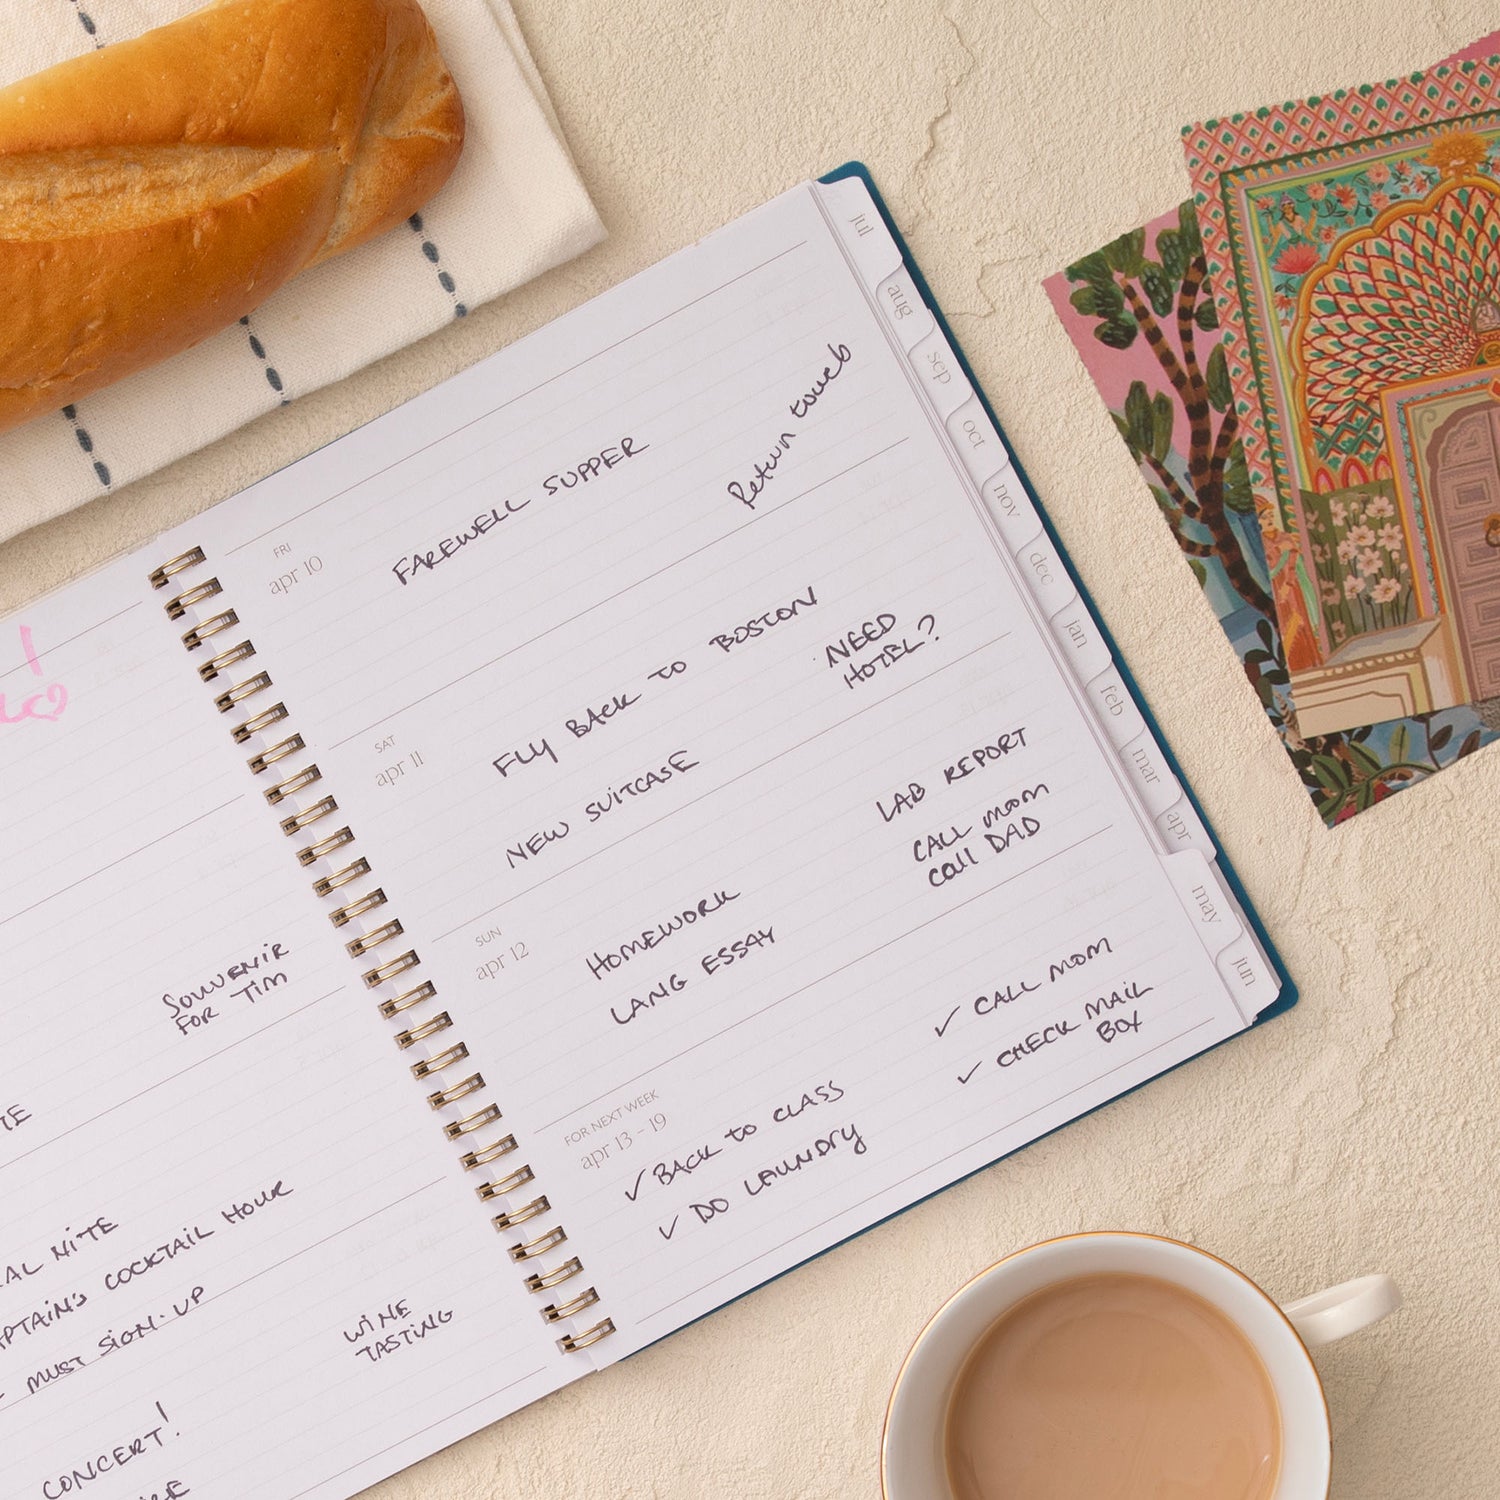 SOUVENIR
FOR TIM
NITE
COCKTAIL HOUR
MUST SIGN-UP
WINE
TASTING
CONCERT!
FRI
apr 10
FAREWELL SUPPER
Return towels
SAT
apr 11
FLY BACK TO BOSTON
NEED
HOTEL?
NEW SUITCASE
SUN
apr 12
HOMEWORK
LANG ESSAY
LAB REPORT
CALL MOM
Call DAD
FOR NEXT WEEK
apr 13 - 19
✓ BACK to CLASS
✓ DO LAUNDRY
✓ CALL MOM
✓ CHECK MAIL
BOX
jul
aug
sep
oct
nov
dec
jan
feb
mar
apr
may
jun